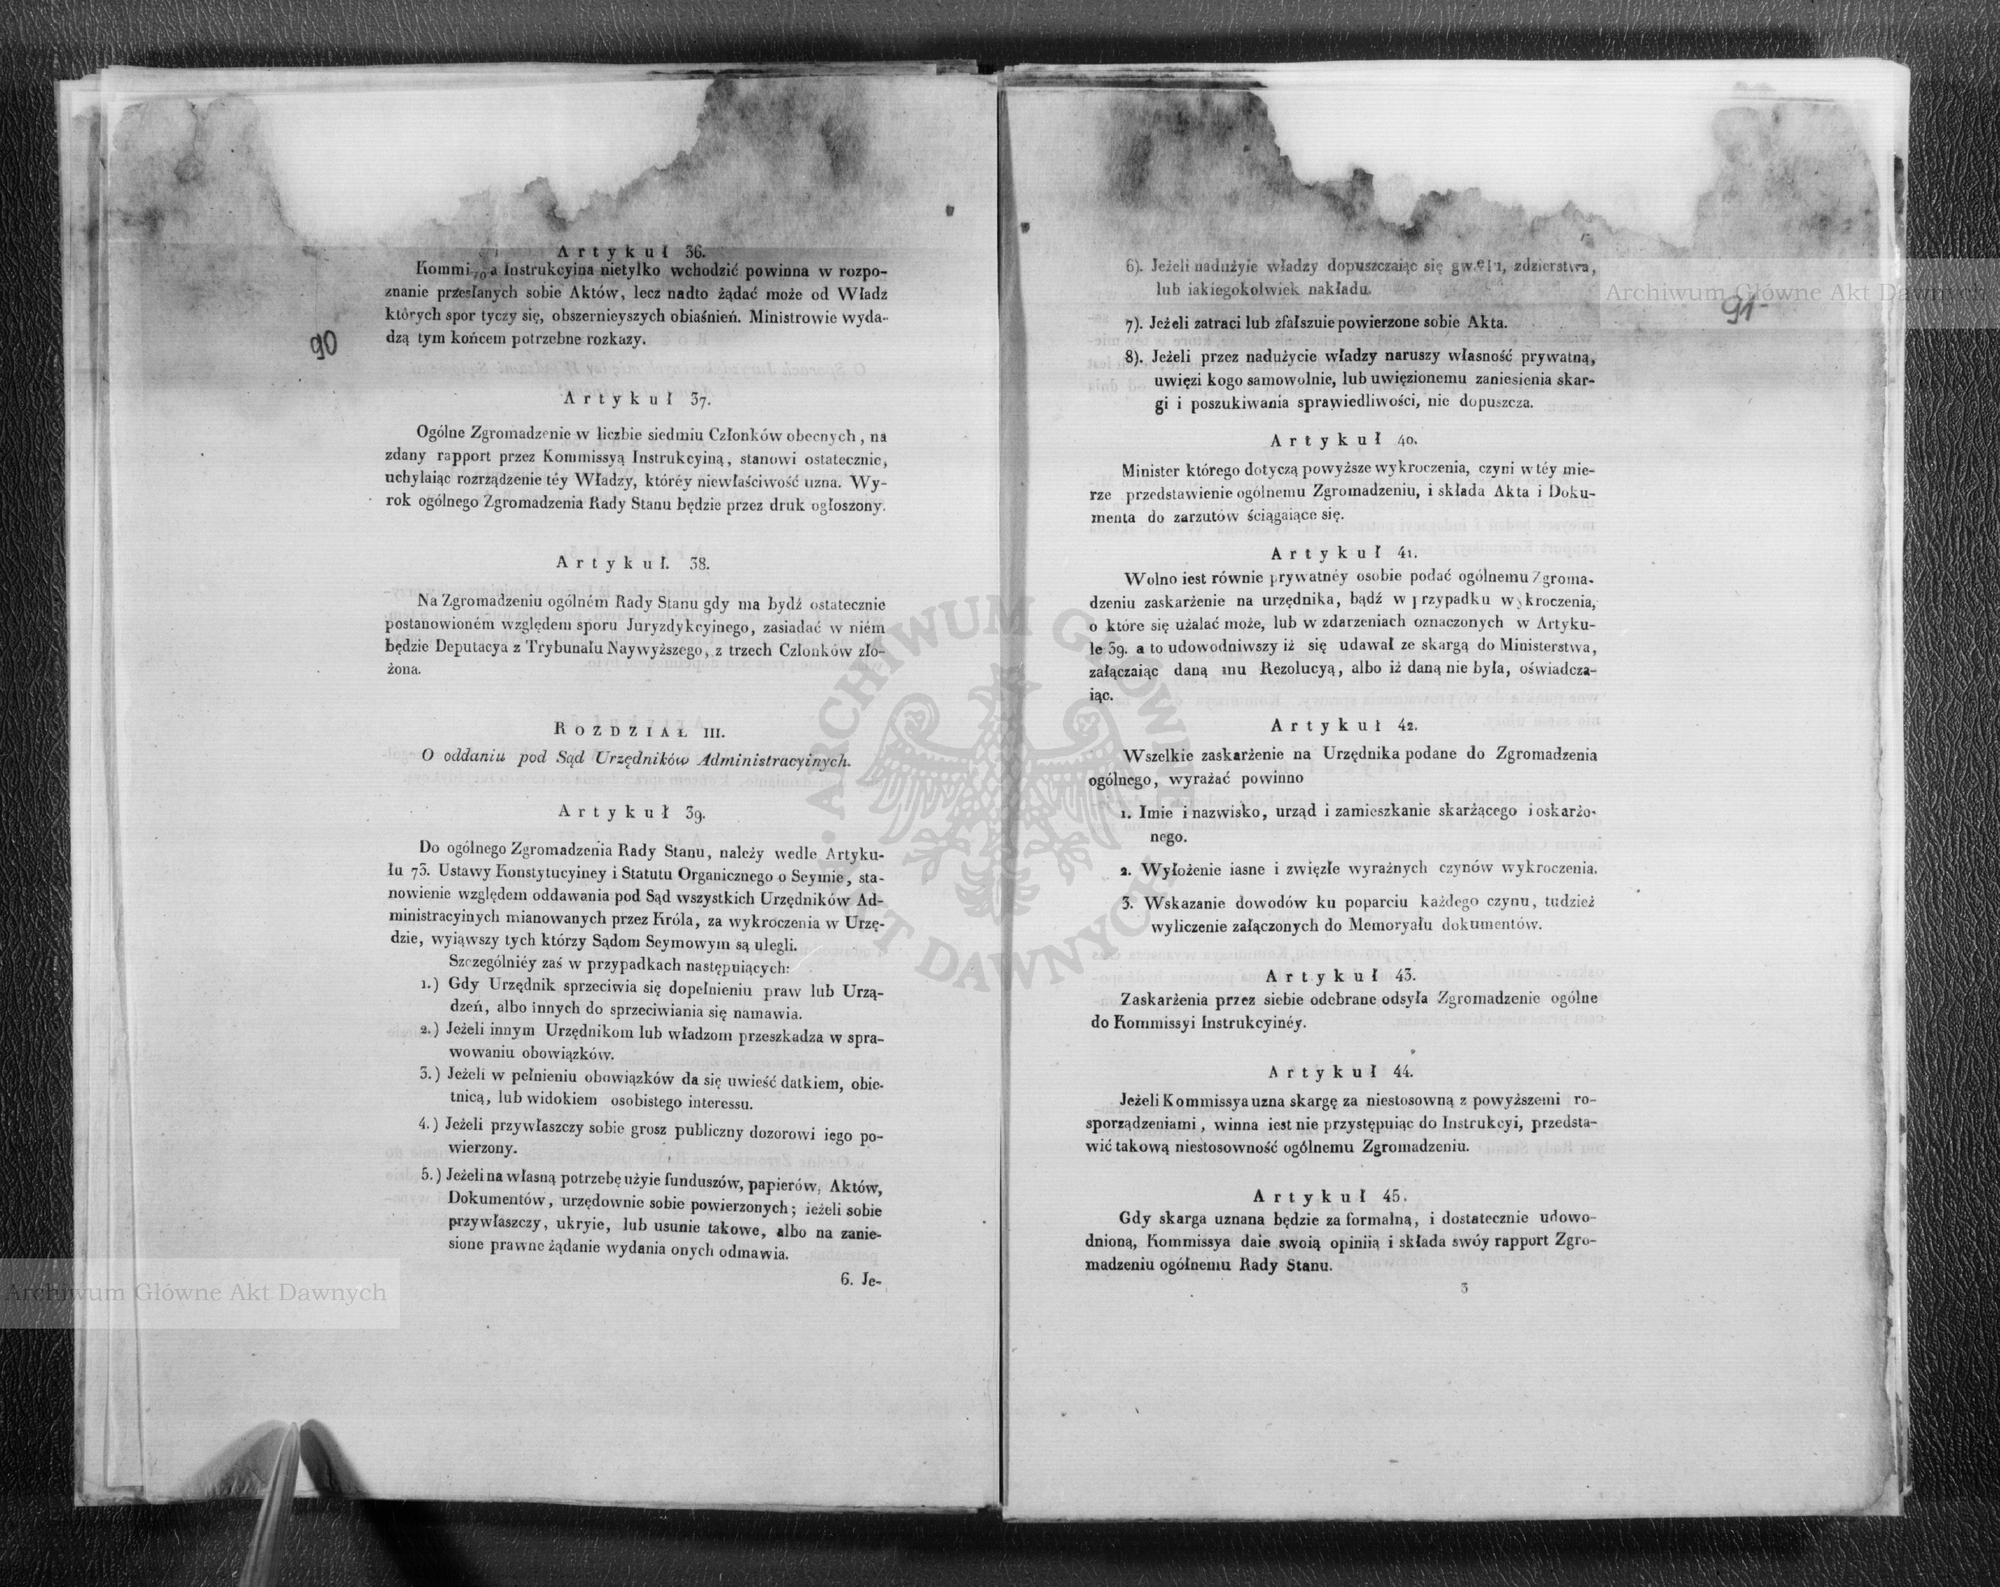 Artykuł 36.
Instrukcyina nietylko wchodzić powinna w rozpo-
znanie przesłanych sobie Aktów, lecz nadto żądać może od Władz
których spor tyczy się, obszernieyszych obiaśnień. Ministrowie wyda-
dzą tym końcem potrzebne rozkazy.
90
Artykuł 37.
Ogólne Zgromadzenie w liczbie siedmiu Członków obecnych, na
zdany rapport przez Kommissyą Instrukcyiną, stanowi ostatecznie,
uchylaiąc rozrządzenie téy Władzy, któréy niewłaściwość uzna. Wy-
rok ogólnego Zgromadzenia Rady Stanu będzie przez druk ogłoszony.
Artykuł. 38.
Na Zgromadzeniu ogólném Rady Stanu gdy ma bydź ostatecznie
postanowioném względem sporu Juryzdykcyinego, zasiadać w niém
będzie Deputacya z Trybunału Naywyższego, z trzech Członków zło-
żona.
ROZDZIAŁ III.
O oddaniu pod Sąd Urzędników Administracyinych.
Artykuł 39.
Do ogólnego Zgromadzenia Rady Stanu, należy wedle Artyku-
łu 73. Ustawy Konstytucyiney i Statutu Organicznego o Seymie, sta-
nowienie względem oddawania pod Sąd wszystkich Urzędników Ad-
ministracyinych mianowanych przez Króla, za wykroczenia w Urzę-
dzie, wyiąwszy tych którzy Sądom Seymowym są ulegli.
Szczególniéy zaś w przypadkach następuiących:
1.) Gdy Urzędnik sprzeciwia się dopełnieniu praw lub Urzą-
dzeń, albo innych do sprzeciwiania się namawia.
2.) Jeżeli innym Urzędnikom lub władzom przeszkadza w spra-
wowaniu obowiązków.
3.) Jeżeli w pełnieniu obowiązków da się uwieść datkiem, obie-
tnicą, lub widokiem osobistego interessu.
4.) Jeżeli przywłaszczy sobie grosz publiczny dozorowi iego po-
wierzony.
5.) Jeżeli na własną potrzebę użyie funduszów, papierów, Aktów,
Dokumentów, urzędownie sobie powierzonych; ieżeli sobie
przywłaszczy, ukryie, lub usunie takowe, albo na zanie-
sione prawne żądanie wydania onych odmawia.
6. Je-
6). Jeżeli nadużyie władzy dopuszczaiąc się zdzierstwa,
lub iakiegokolwiek nakładu.
91
7). Jeżeli zatraci lub zfałszuie powierzone sobie Akta.
8). Jeżeli przez nadużycie władzy naruszy własność prywatną,
uwięzi kogo samowolnie, lub uwięzionemu zaniesienia skar-
gi i poszukiwania sprawiedliwości, nie dopuszcza.
Artykuł 40.
Minister którego dotyczą powyższe wykroczenia, czyni w téy mie-
rze przedstawienie ogólnemu Zgromadzeniu, i składa Akta i Doku-
menta do zarzutów ściągaiące się.
Artykuł 41.
Wolno iest równie prywatnéy osobie podać ogólnemu Zgroma-
dzeniu zaskarżenie na urzędnika, bądź w przypadku wykroczenia,
o które się użalać może, lub w zdarzeniach oznaczonych w Artyku-
le 39. a to udowodniwszy iż się udawał ze skargą do Ministerstwa,
załączaiąc daną mu Rezolucyą, albo iż daną nie była, oświadcza-
iąc.
Artykuł 42.
Wszelkie zaskarżenie na Urzędnika podane do Zgromadzenia
ogólnego, wyrażać powinno
1. Imie i nazwisko, urząd i zamieszkanie skarżącego i oskarżo-
nego.
2. Wyłożenie iasne i zwięzłe wyraźnych czynów wykroczenia.
3. Wskazanie dowodów ku poparciu każdego czynu, tudzież
wyliczenie załączonych do Memoryału dokumentów.
Artykuł 43.
Zaskarżenia przez siebie odebrane odsyła Zgromadzenie ogólne
do Kommissyi Instrukcyinéy.
Artykuł 44.
Jeżeli Kommissya uzna skargę za niestosowną z powyższemi ro-
sporządzeniami, winna iest nie przystępuiąc do Instrukcyi, przedsta-
wić takową niestosowność ogólnemu Zgromadzeniu.
Artykuł 45.
Gdy skarga uznana będzie za formalną, i dostatecznie udowo-
dnioną, Kommissya daie swoią opiniią i składa swóy rapport Zgro-
madzeniu ogólnemu Rady Stanu.
3
ARCHIWUM GŁÓWNE AKT DAWNYCH
Archiwum Główne Akt Dawnych
Archiwum Główne Akt Dawnych